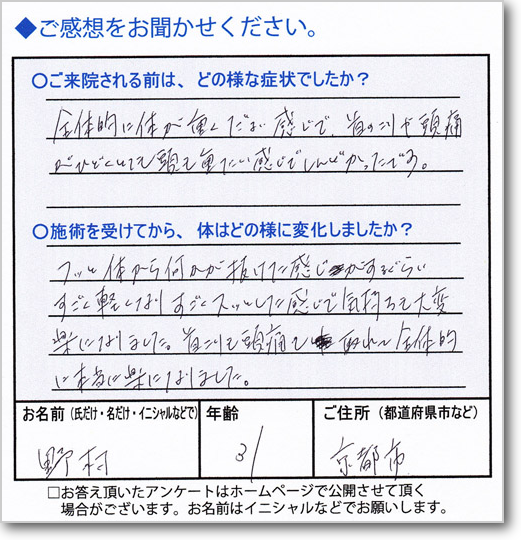 ◆ご感想をお聞かせください。
○ご来院される前は、どの様な症状でしたか？
全体的に体が重くだるい感じで、首のコリや頭痛
がひどくいつも頭も重たい感じでしんどかったです。
○施術を受けてから、体はどの様に変化しましたか？
フッと体から何かが抜けた感じがするぐらい
すごく軽くなりすごくスッとした感じで気持ちも大変
楽になりました。首コリも頭痛も取れて全体的
に本当に楽になりました。
お名前（氏だけ・名だけ・イニシャルなどで） 年齢 ご住所（都道府県市など）
野村 31 京都市
□お答え頂いたアンケートはホームページで公開させて頂く
場合がございます。お名前はイニシャルなどでお願いします。